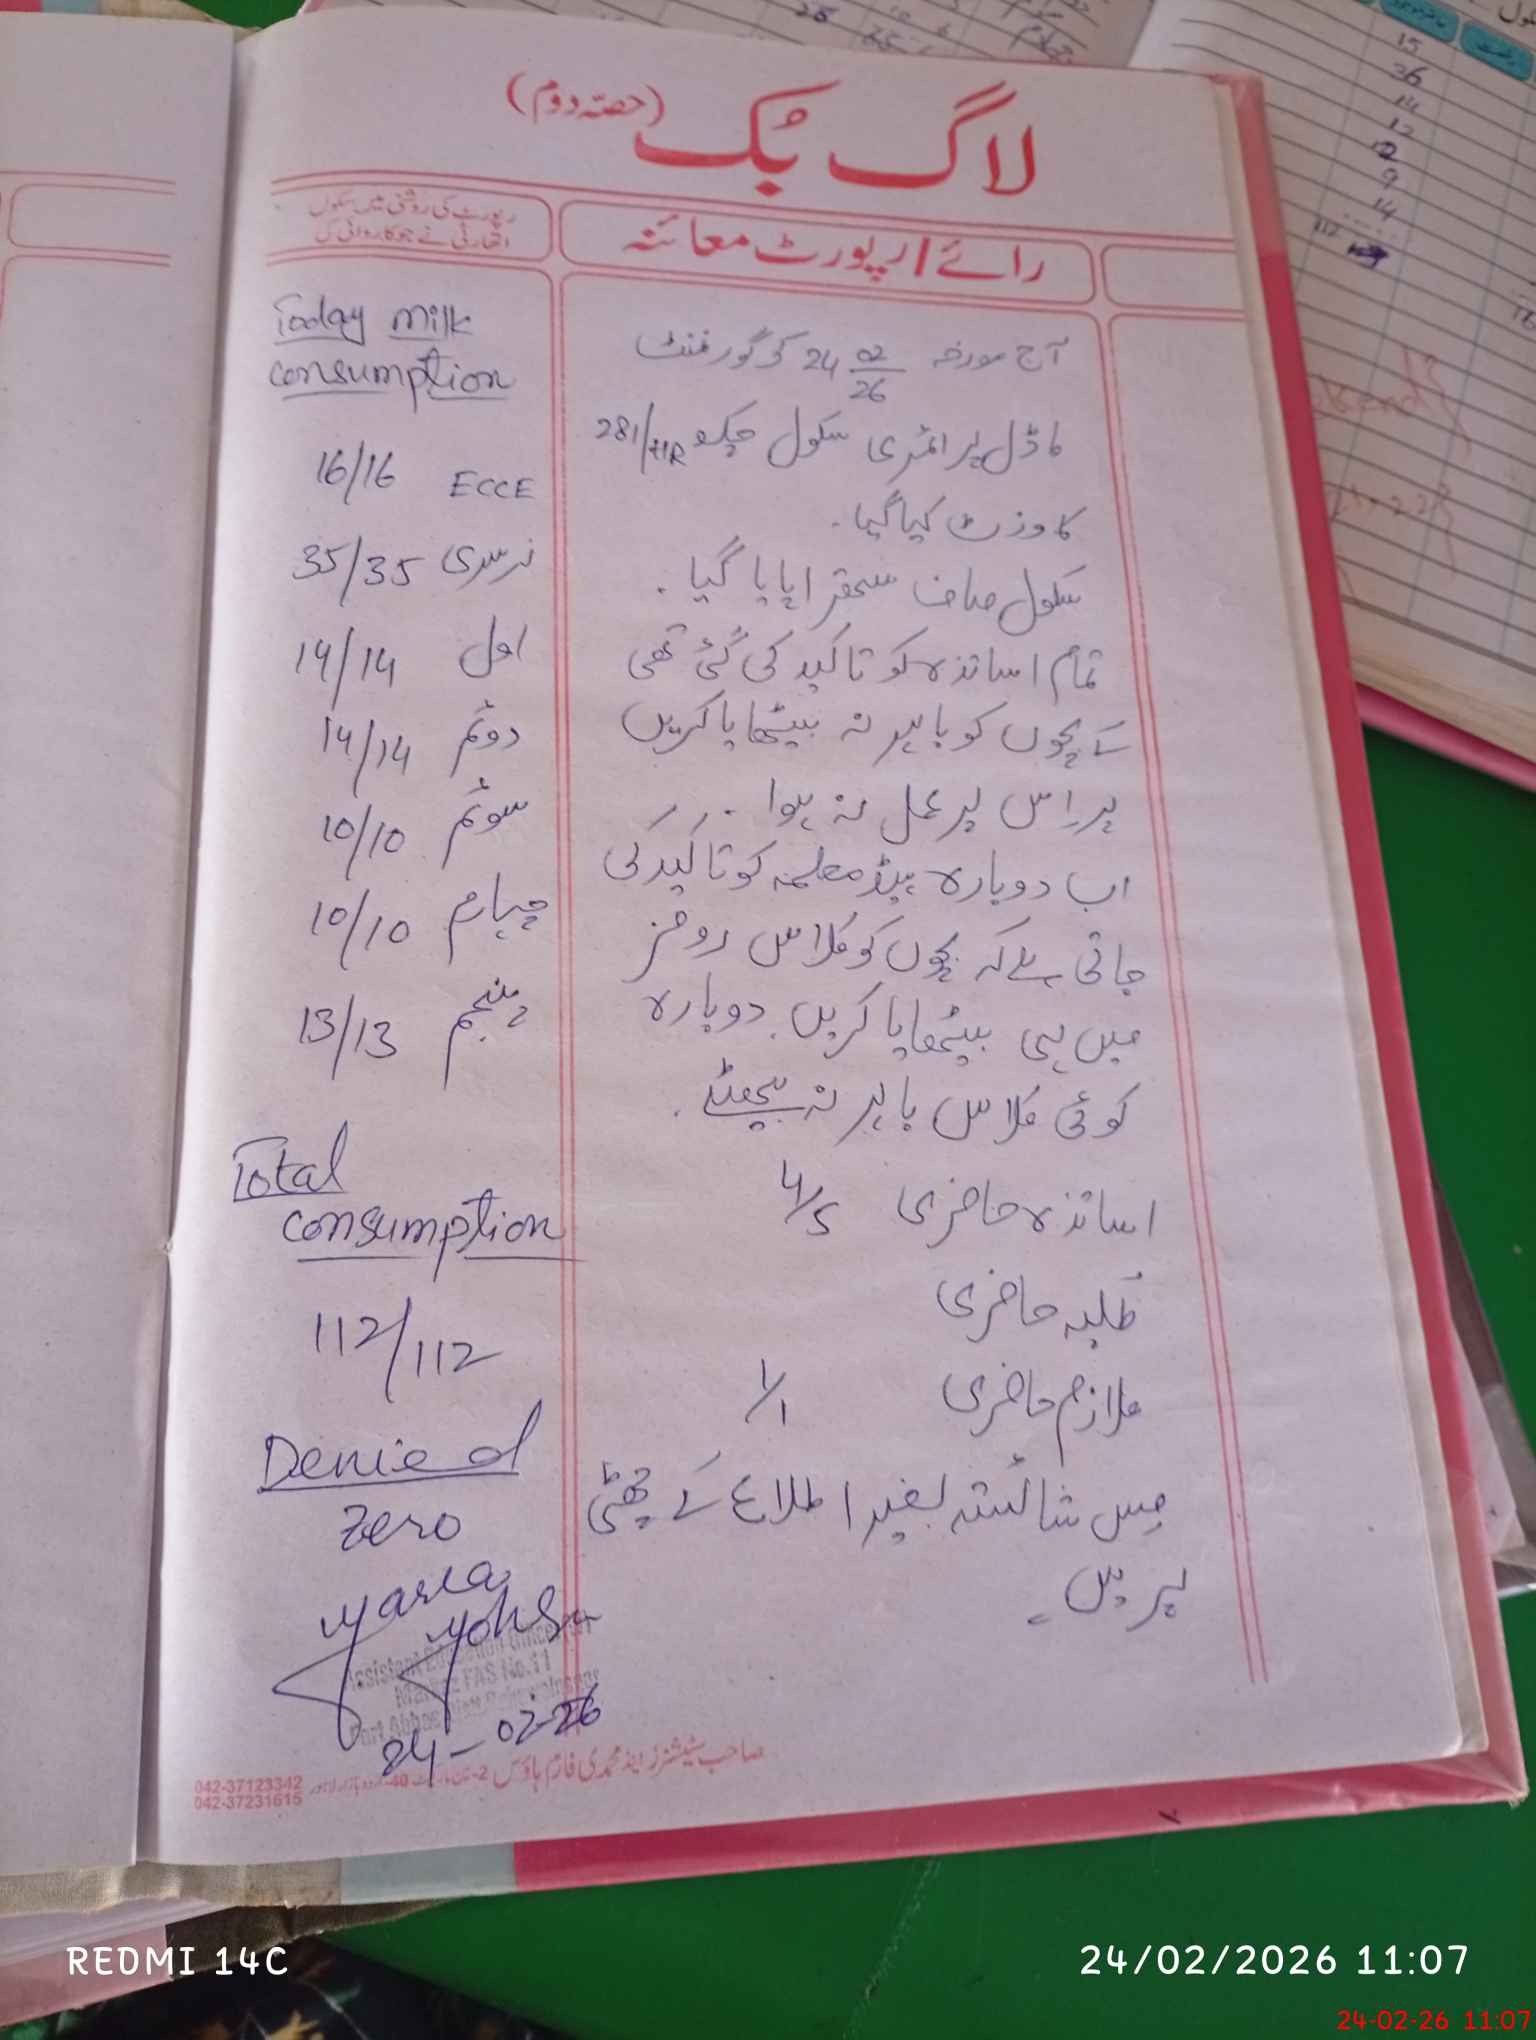 لاگ بُک (حصّہ دوم)
رائے / رپورٹ معائنہ
رپورٹ کی روشنی میں سکول
اتھارٹی نے جو کاروائی کی
آج مورخہ 24 02/26 کو گورنمنٹ
ماڈل پرائمری سکول چک 281/HR
کا وزٹ کیا گیا۔
سکول صاف ستھرا پایا گیا۔
تمام اساتذہ کو تاکید کی گئی تھی
کے بچوں کو باہر نہ بیٹھایا کریں
پر اِس پر عمل نہ ہوا۔
اب دوبارہ ہیڈ معلمہ کو تاکید کی
جاتی ہے کہ بچوں کو کلاس رومز
میں ہی بیٹھایا کریں۔ دوبارہ
کوئی کلاس باہر نہ بیٹھے۔
اساتذہ حاضری 4/5
طلبہ حاضری
ملازم حاضری 1/1
مِس شائستہ بغیر اطلاع کے چھٹی
پر ہیں۔
Today milk
consumption
16/16 ECCE
35/35 نرسری
14/14 اول
14/14 دوئم
10/10 سوئم
10/10 چہارم
13/13 پنجم
Total
consumption
112/112
Denied
Zero
Maria
Mohsin
Assistant Education Officer
Markaz FAS No.11
Fort Abbas
24-02-26
042-37123342
042-37231615
صاحب سٹیشنرز اینڈ محمدی فارم ہاؤس
15
36
14
12
9
14
112
REDMI 14C
24/02/2026 11:07
24-02-26 11:07